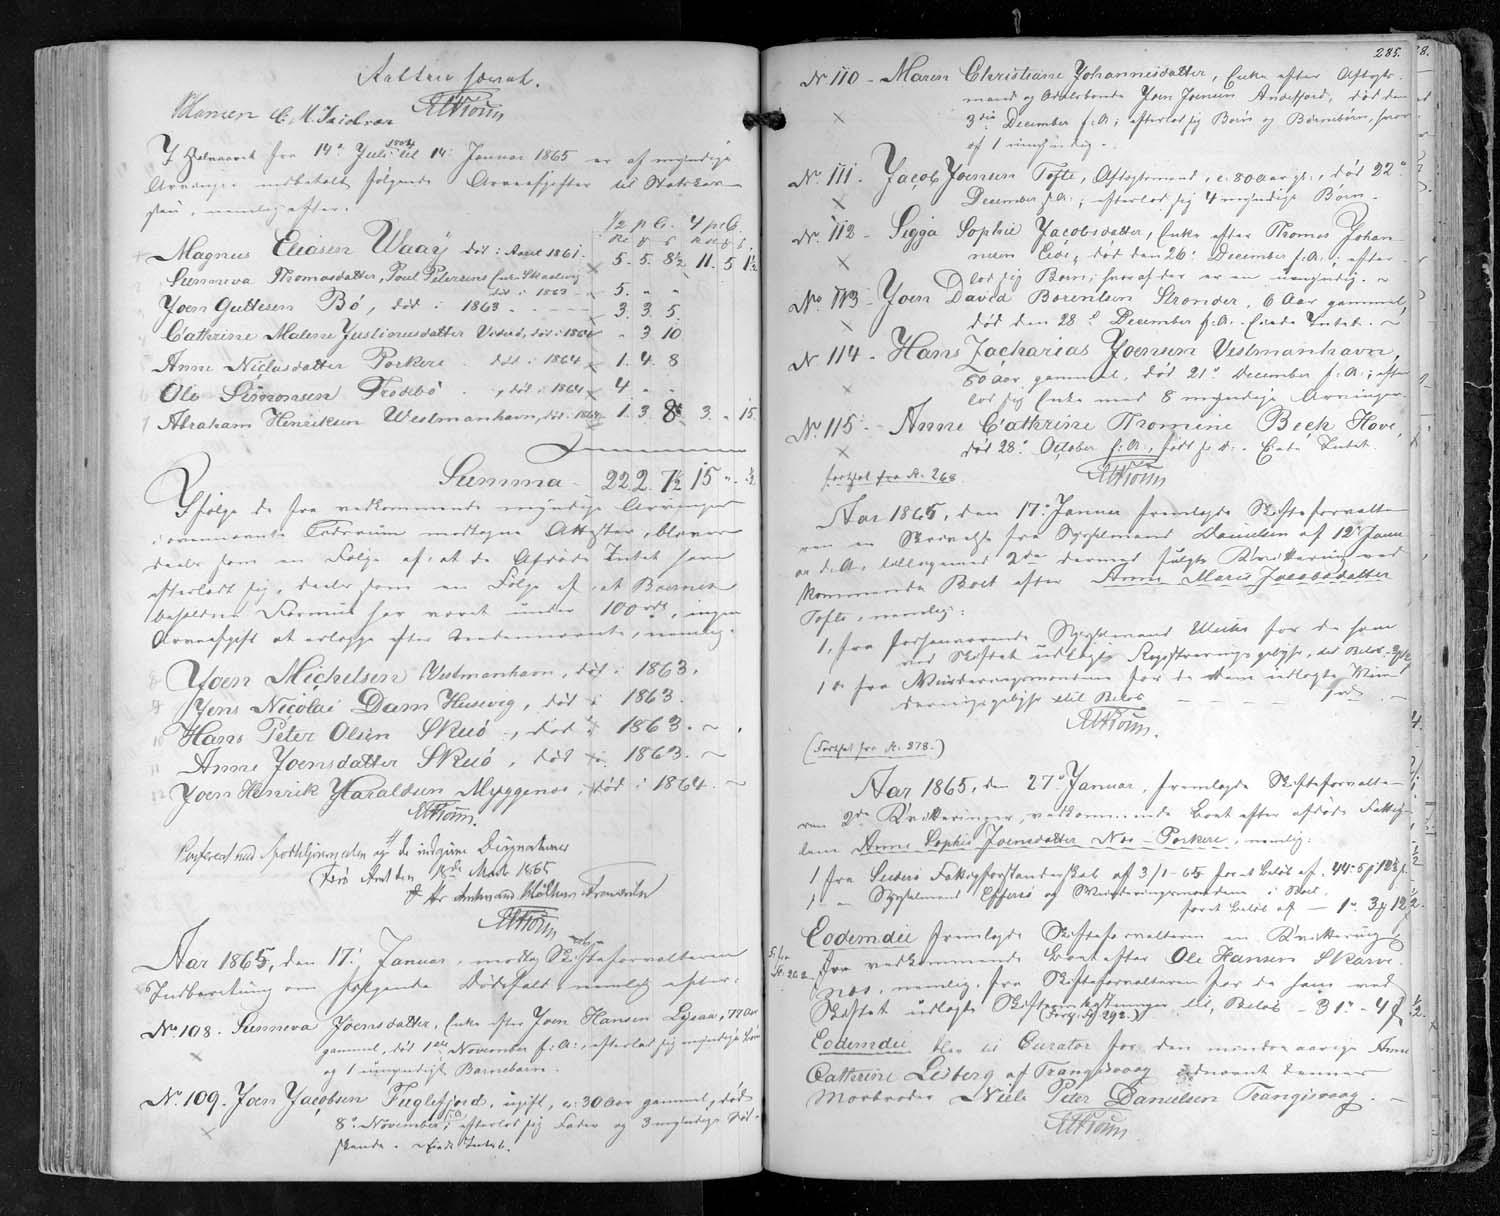 Retten hævet.
Hansen C. M. Jacobsen HTrom
I Halvaaret fra 14de Juli 1864 til 14. Januar 1865 er af myndige
Arvinger indbetalt følgende Arveafgifter til Statskas-
sen, nemlig efter:
1/2 p C. 4 prC.
Magnus Eliasen Waag død i Aaret 1861. 5. 5. 8½ 11. 5 1½
Sunneva Thomasdatter, Poul Petersens Enke
død i 1863 5. " "
Joen Guttesen Bø, død i 1863 3. 3. 5.
Cathrine Malene Justinusdatter Viderø, død i 1864 " 3 10
Anne Niclasdatter Porkere død i 1864 1. 4. 8
Ole Simonsen Frodbø, død i 1864 4. " "
Abraham Henriksen Westmanhavn, død i 1864 1. 3. 8 3. " 15
Summa 22 2. 7½ 15 "
Ifølge de fra vedkommende myndige Arvinger
i ovennævnte Tidsrum modtagne Attester, bliver
deels som en Følge af, at de Afdøde Intet have
efterladt sig, deels som en Følge af, at Boernes
beholdne Formue har været under 100 rd, ingen
Arveafgift at erlægge efter Nedennævnte, nemlig:
Joen Michelsen Westmanhavn, død i 1863.
Jens Nicolai Dam Husevig, død i 1863.
Hans Peter Olsen Skuø, død i 1863.
Anne Joensdatter Skuø, død i 1863.
Joen Henrik Haraldsen Myggenæs, død i 1864.
HTrom.
Confereret med Protokollen og de indgivne Designationer
Færø Amt den 18de Marts 1865
HTrom
Aar 1865, den 17. Januar, modtog Skifteforvalteren
Indberetning om følgende Dødsfald nemlig efter:
No 108. Sunneva Joensdatter, Enke efter Joen Hansen, 77 Aar
gammel, død 1ste November f: A:, efterlod sig myndige Børn
og 1 umyndigt Barnebarn.
No. 109. Joen Jacobsen Fuglefjord, ugift, c: 30 Aar gammel, død
8de November f. A., efterlod sig Fader og 3 myndige Sød-
skende. Eiede Intet.
285.
No 110 - Maren Christiane Johannesdatter, Enke efter Aftægts-
mand og Odelsbonde Joen Joensen Andefjord, død den
3die December f: A:, efterlod sig Børn og Børnebørn, hvor-
af 1 umyndig.
No. 111. Jacob Joensen Tofte, Aftægtsmand, c: 80 Aar gl., død 22de
December f: A:, efterlod sig 4 myndige Børn.
No. 112 - Sigga Sophie Jacobsdatter, Enke efter Thomas Johan-
nesen Eide, død den 26de December f. A., efter-
lod sig Børn, hvoraf der er en umyndig.
No 113 - Joen David Sørensen Strender, 6 Aar gammel,
død den 28de December f. A. Eiede Intet.
No 114 - Hans Zacharias Joensen Vestmanhavn,
80 Aar gammel, død 21de December f. A., efter-
lod sig Enke med 8 myndige Arvinger.
No. 115 - Anne Cathrine Thomine Beck Hove,
død 28de October f: A:, født s. d. Eiede Intet.
HTrom
fortsat fra S. 268.
Aar 1865, den 17. Januar fremlagde Skifteforvalte-
ren en Skrivelse fra Sysselmand Danielsen af 12te Janu-
ar d. A. tilligemed 2de dermed fulgte Qvitteringer ved-
kommende Boet efter Anne Marie Jacobsdatter
Tofte, nemlig:
1, fra forhenværende Sysselmand Müller for de ham
ved Skiftet udlagte Registreringsgebyhr
1 do fra Vurderingsmændene for de dem udlagte Vur-
deringsgebyhr
HTrom.
(Fortsat fra S. 278.)
Aar 1865, den 27de Januar, fremlagde Skifteforvalte-
ren 2de Qvitteringer, vedkommende Boet efter afdøde Fattig-
lem Anne Sophie Joensdatter Næs - Porkere, nemlig:
1 fra Suderø Fattigforstanderskab af 3/1 - 65 for et Beløb af
1 " Sysselmand Effersø og Vurderingsmændene
for et Beløb af 1
Eodemdie fremlagde Skifteforvalteren en Qvittering
fra vedkommende Boet efter Ole Hansen Skarve-
næs, nemlig fra Skifteforvalteren for de ham ved
Skiftet udlagte Skifteomkostninger til Beløb - 31 - 4
(Forts. S. 292.)
Eodemdie blev til Curator for den mindreaarige Anne
Cathrine Lisberg af Trangisvaag udnævnt dennes
Morbroder Niels Peter Danielsen Trangisvaag.
HTrom.